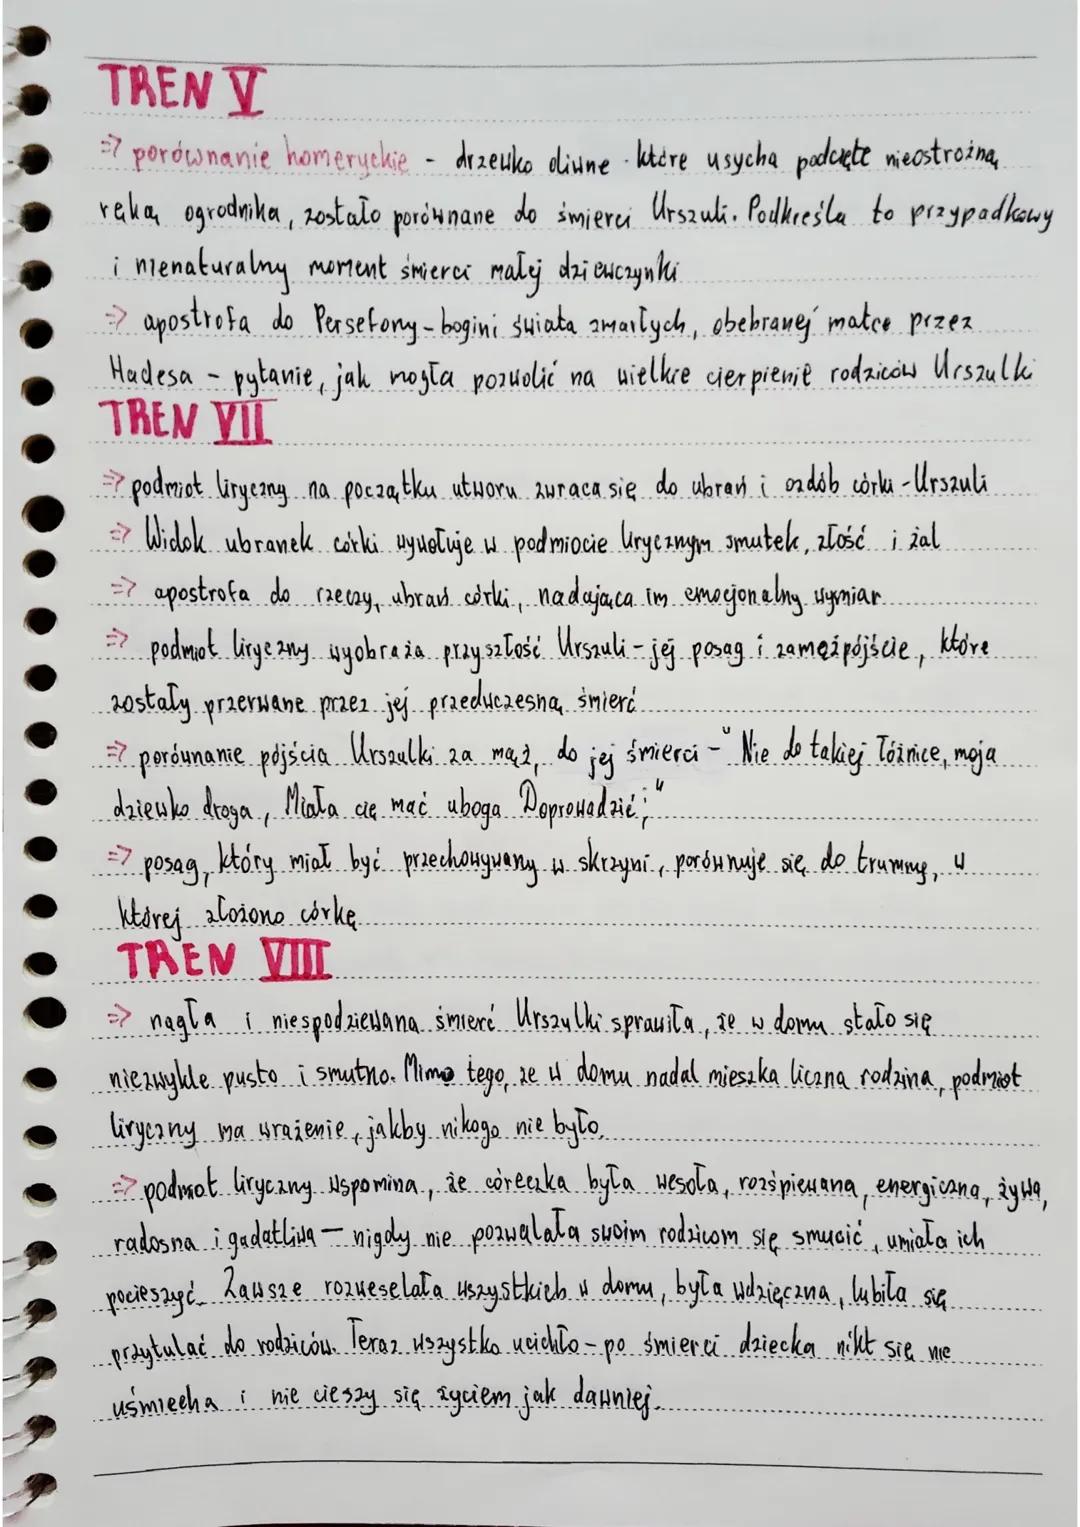 TREN V
=> porównanie homeryckie - drzewko oliwne - które usycha podcięte nieostrożną
ręką ogrodnika, zostało porównane do śmierci Urszuli. Podkreśla to przypadkowy
i nienaturalny moment śmierci małej dziewczynki
=> apostrofa do Persefony - bogini świata zmarłych, obebranej matce przez
Hadesa - pytanie, jak mogła pozwolić na wielkie cierpienie rodziców Urszulki
TREN VII
=> podmiot liryczny na początku utworu zwraca się do ubrań i ozdób córki - Urszuli
=> Widok ubranek córki wywołuje w podmiocie lirycznym smutek, złość i żal
=> apostrofa do rzeczy, ubrań córki, nadająca im emocjonalny wymiar
=> podmiot liryczny wyobraża przyszłość Urszuli - jej posag i zamążpójście, które
zostały przerwane przez jej przedwczesną śmierć
=> porównanie pójścia Urszulki za mąż, do jej śmierci - " Nie do takiej łóżnice, moja
dziewko droga, Miała cię mać uboga Doprowadzić; "
=> posag, który miał być przechowywany w skrzyni, porównuje się do trumny, w
której złożono córkę
TREN VIII
=> nagła i niespodziewana śmierć Urszulki sprawiła, że w domu stało się
niezwykle pusto i smutno. Mimo tego, że w domu nadal mieszka liczna rodzina, podmiot
liryczny ma wrażenie, jakby nikogo nie było.
=> podmiot liryczny wspomina, że córeczka była wesoła, rozśpiewana, energiczna, żywa,
radosna i gadatliwa - nigdy nie pozwalała swoim rodzicom się smucić, umiała ich
pocieszyć. Zawsze rozweselała wszystkich w domu, była wdzięczna, lubiła się
przytulać do rodziców. Teraz wszystko ucichło - po śmierci dziecka nikt się nie
uśmiecha i nie cieszy się życiem jak dawniej.